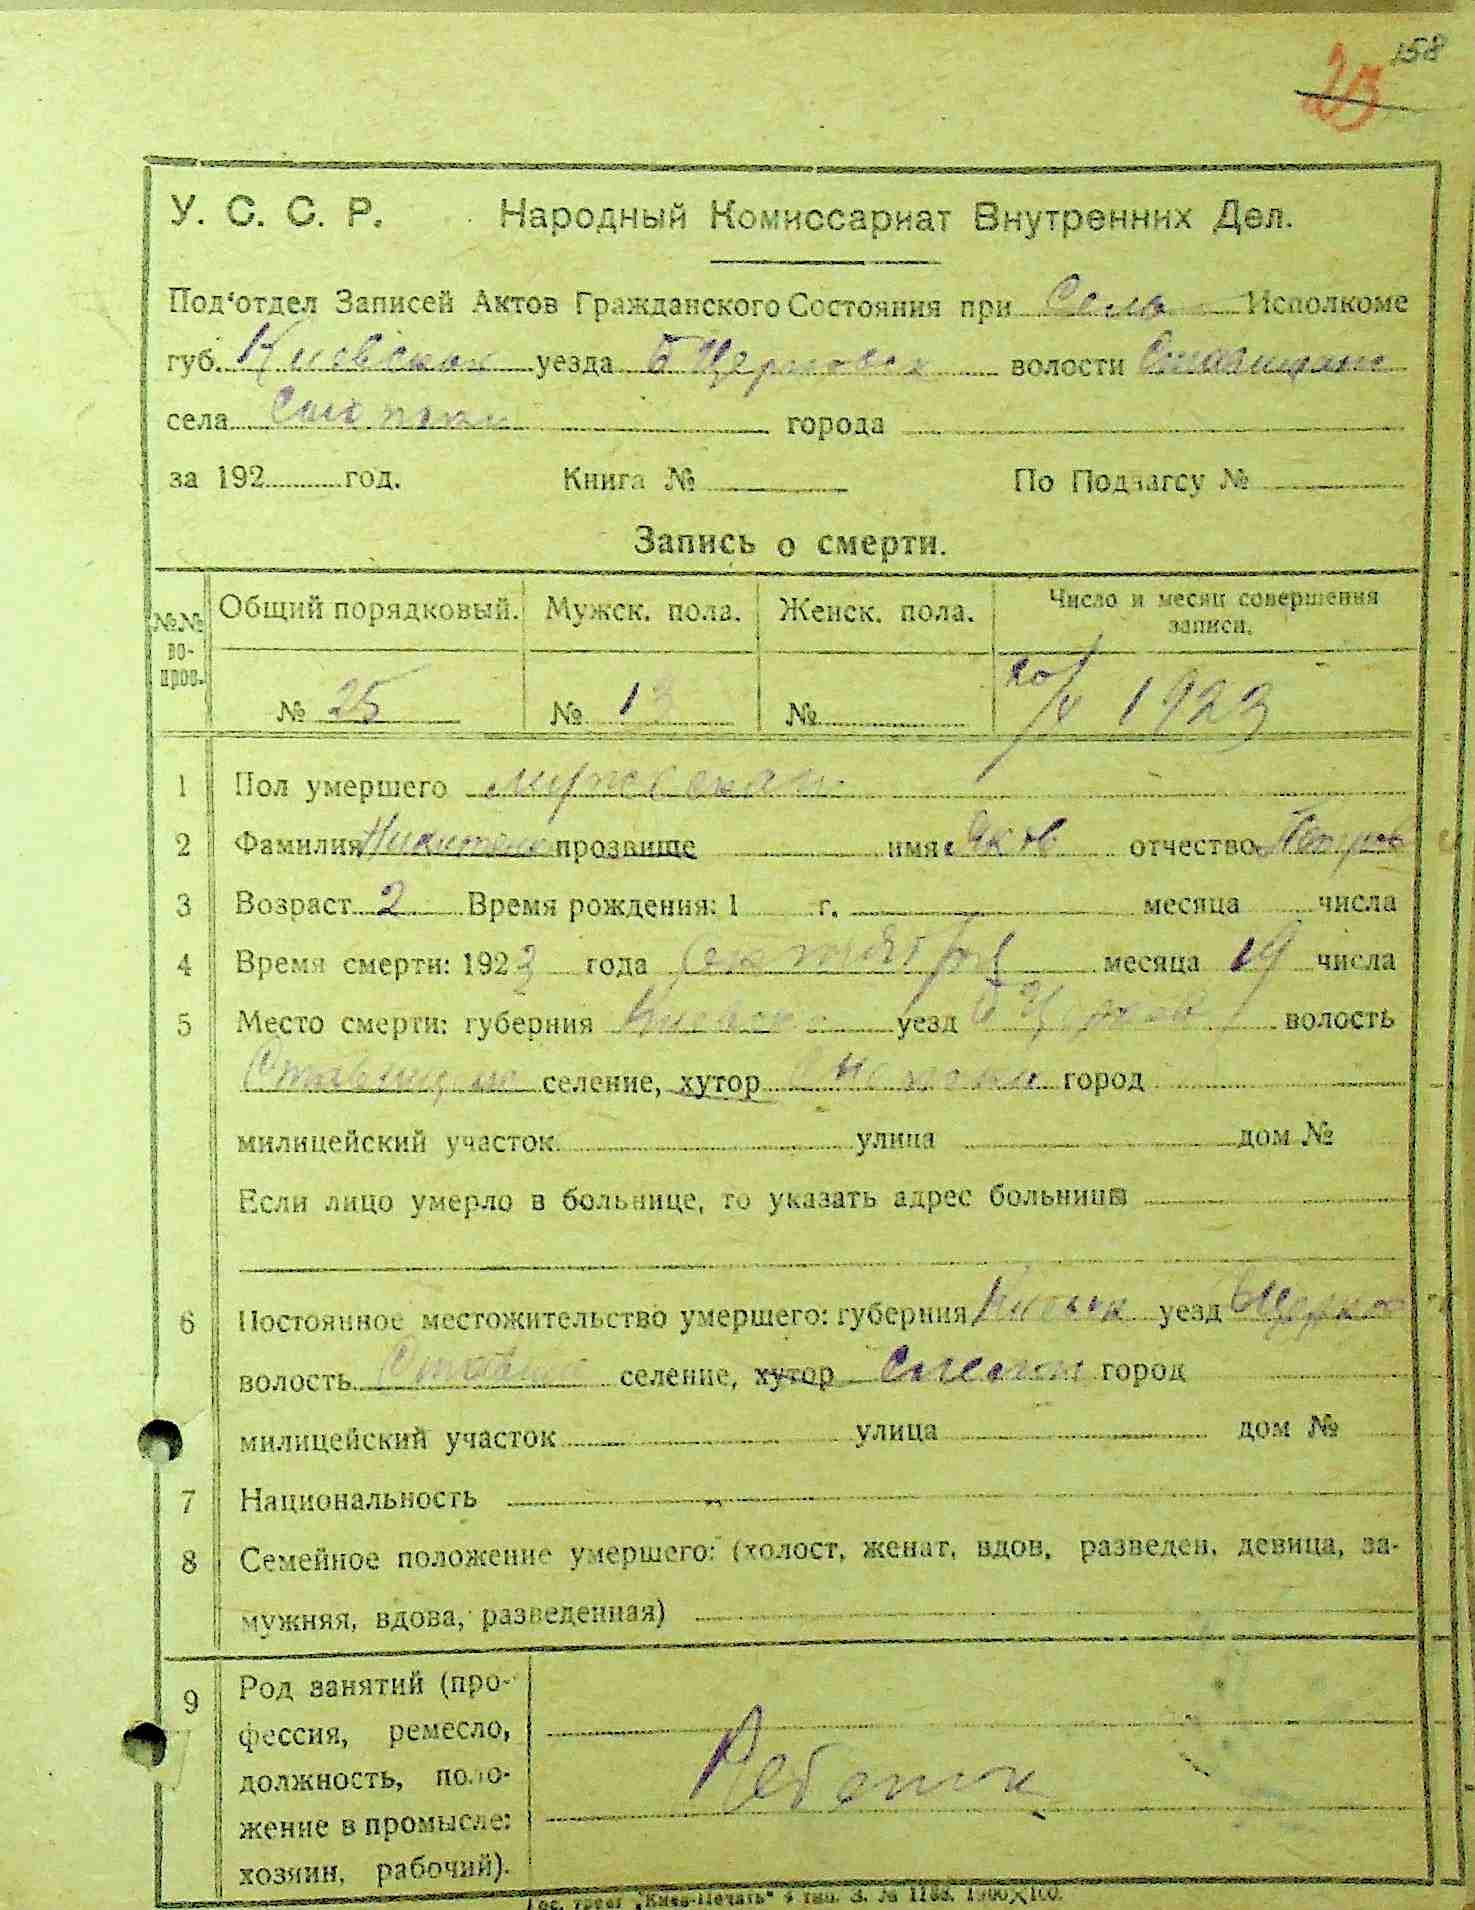 158
У. С. С. Р. Народный Комиссариат Внутренних Дел.
Под'отдел Записей Актов Гражданского Состояния при Сель Исполкоме
губ. Киевской уезда Б Церковск волости
села города
за 192 год. Книга № По Подзагсу №
Запись о смерти.
№№ вопров. Общий порядковый. Мужск. пола. Женск. пола. Число и месяц совершения записи.
№ 25 № 13 № 20/X 1923
1 Пол умершего мужской
2 Фамилия Никитенко прозвище имя Яков отчество Петров
3 Возраст 2 Время рождения: 1 г. месяца числа
4 Время смерти: 1923 года октября месяца 19 числа
5 Место смерти: губерния Киевск уезд Б Церков волость
Ставищан селение, хутор город
милицейский участок улица дом №
Если лицо умерло в больнице, то указать адрес больницы
6 Постоянное местожительство умершего: губерния Киевск уезд БЦерков
волость Ставищ селение, хутор город
милицейский участок улица дом №
7 Национальность
8 Семейное положение умершего: (холост, женат, вдов, разведен, девица, за-
мужняя, вдова, разведенная)
9 Род занятий (про-
фессия, ремесло,
должность, поло-
жение в промысле:
хозяин, рабочий).
Ребенок
Гос. трест „Киев-Печать" 4 тип. З. № 1188. 1900×100.